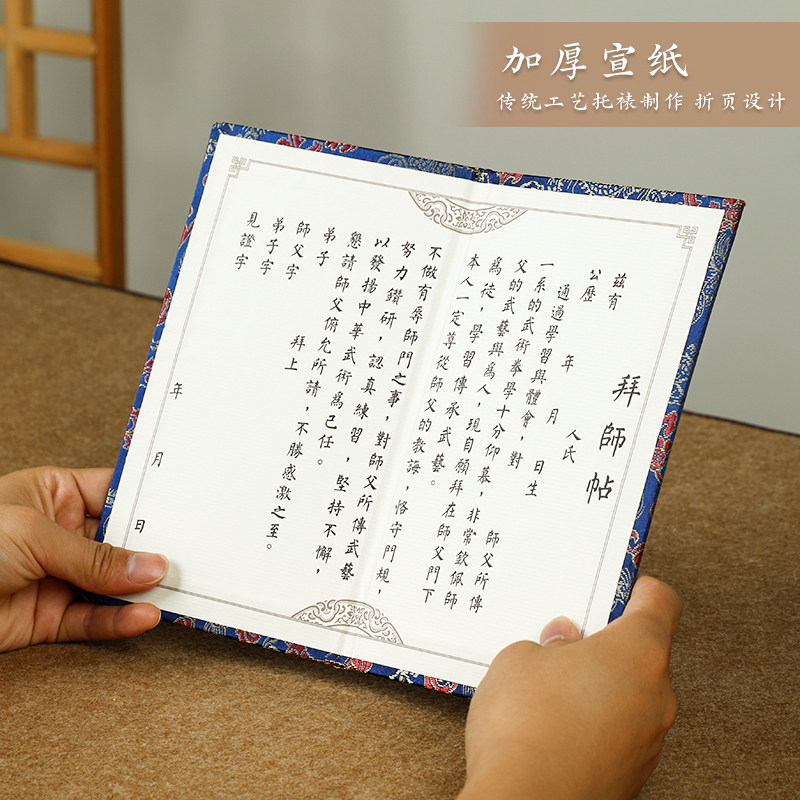 加厚宣纸
传统工艺托裱制作 折页设计
拜師帖
茲有 人氏
公歷 年 月 日生
通過學習與體會，對 師父所傳
一系的武術拳學十分仰慕，非常欽佩師
父的武藝與爲人，現自願拜在師父門下
爲徒，學習傳承武藝。
本人一定尊從師父的教誨，恪守門規，
不做有辱師門之事，對師父所傳武藝
努力鑽研，認真練習，堅持不懈，
以發揚中華武術爲己任。
懇請師父俯允所請，不勝感激之至。
弟子 拜上
師父字
弟子字
見證字
年 月 日